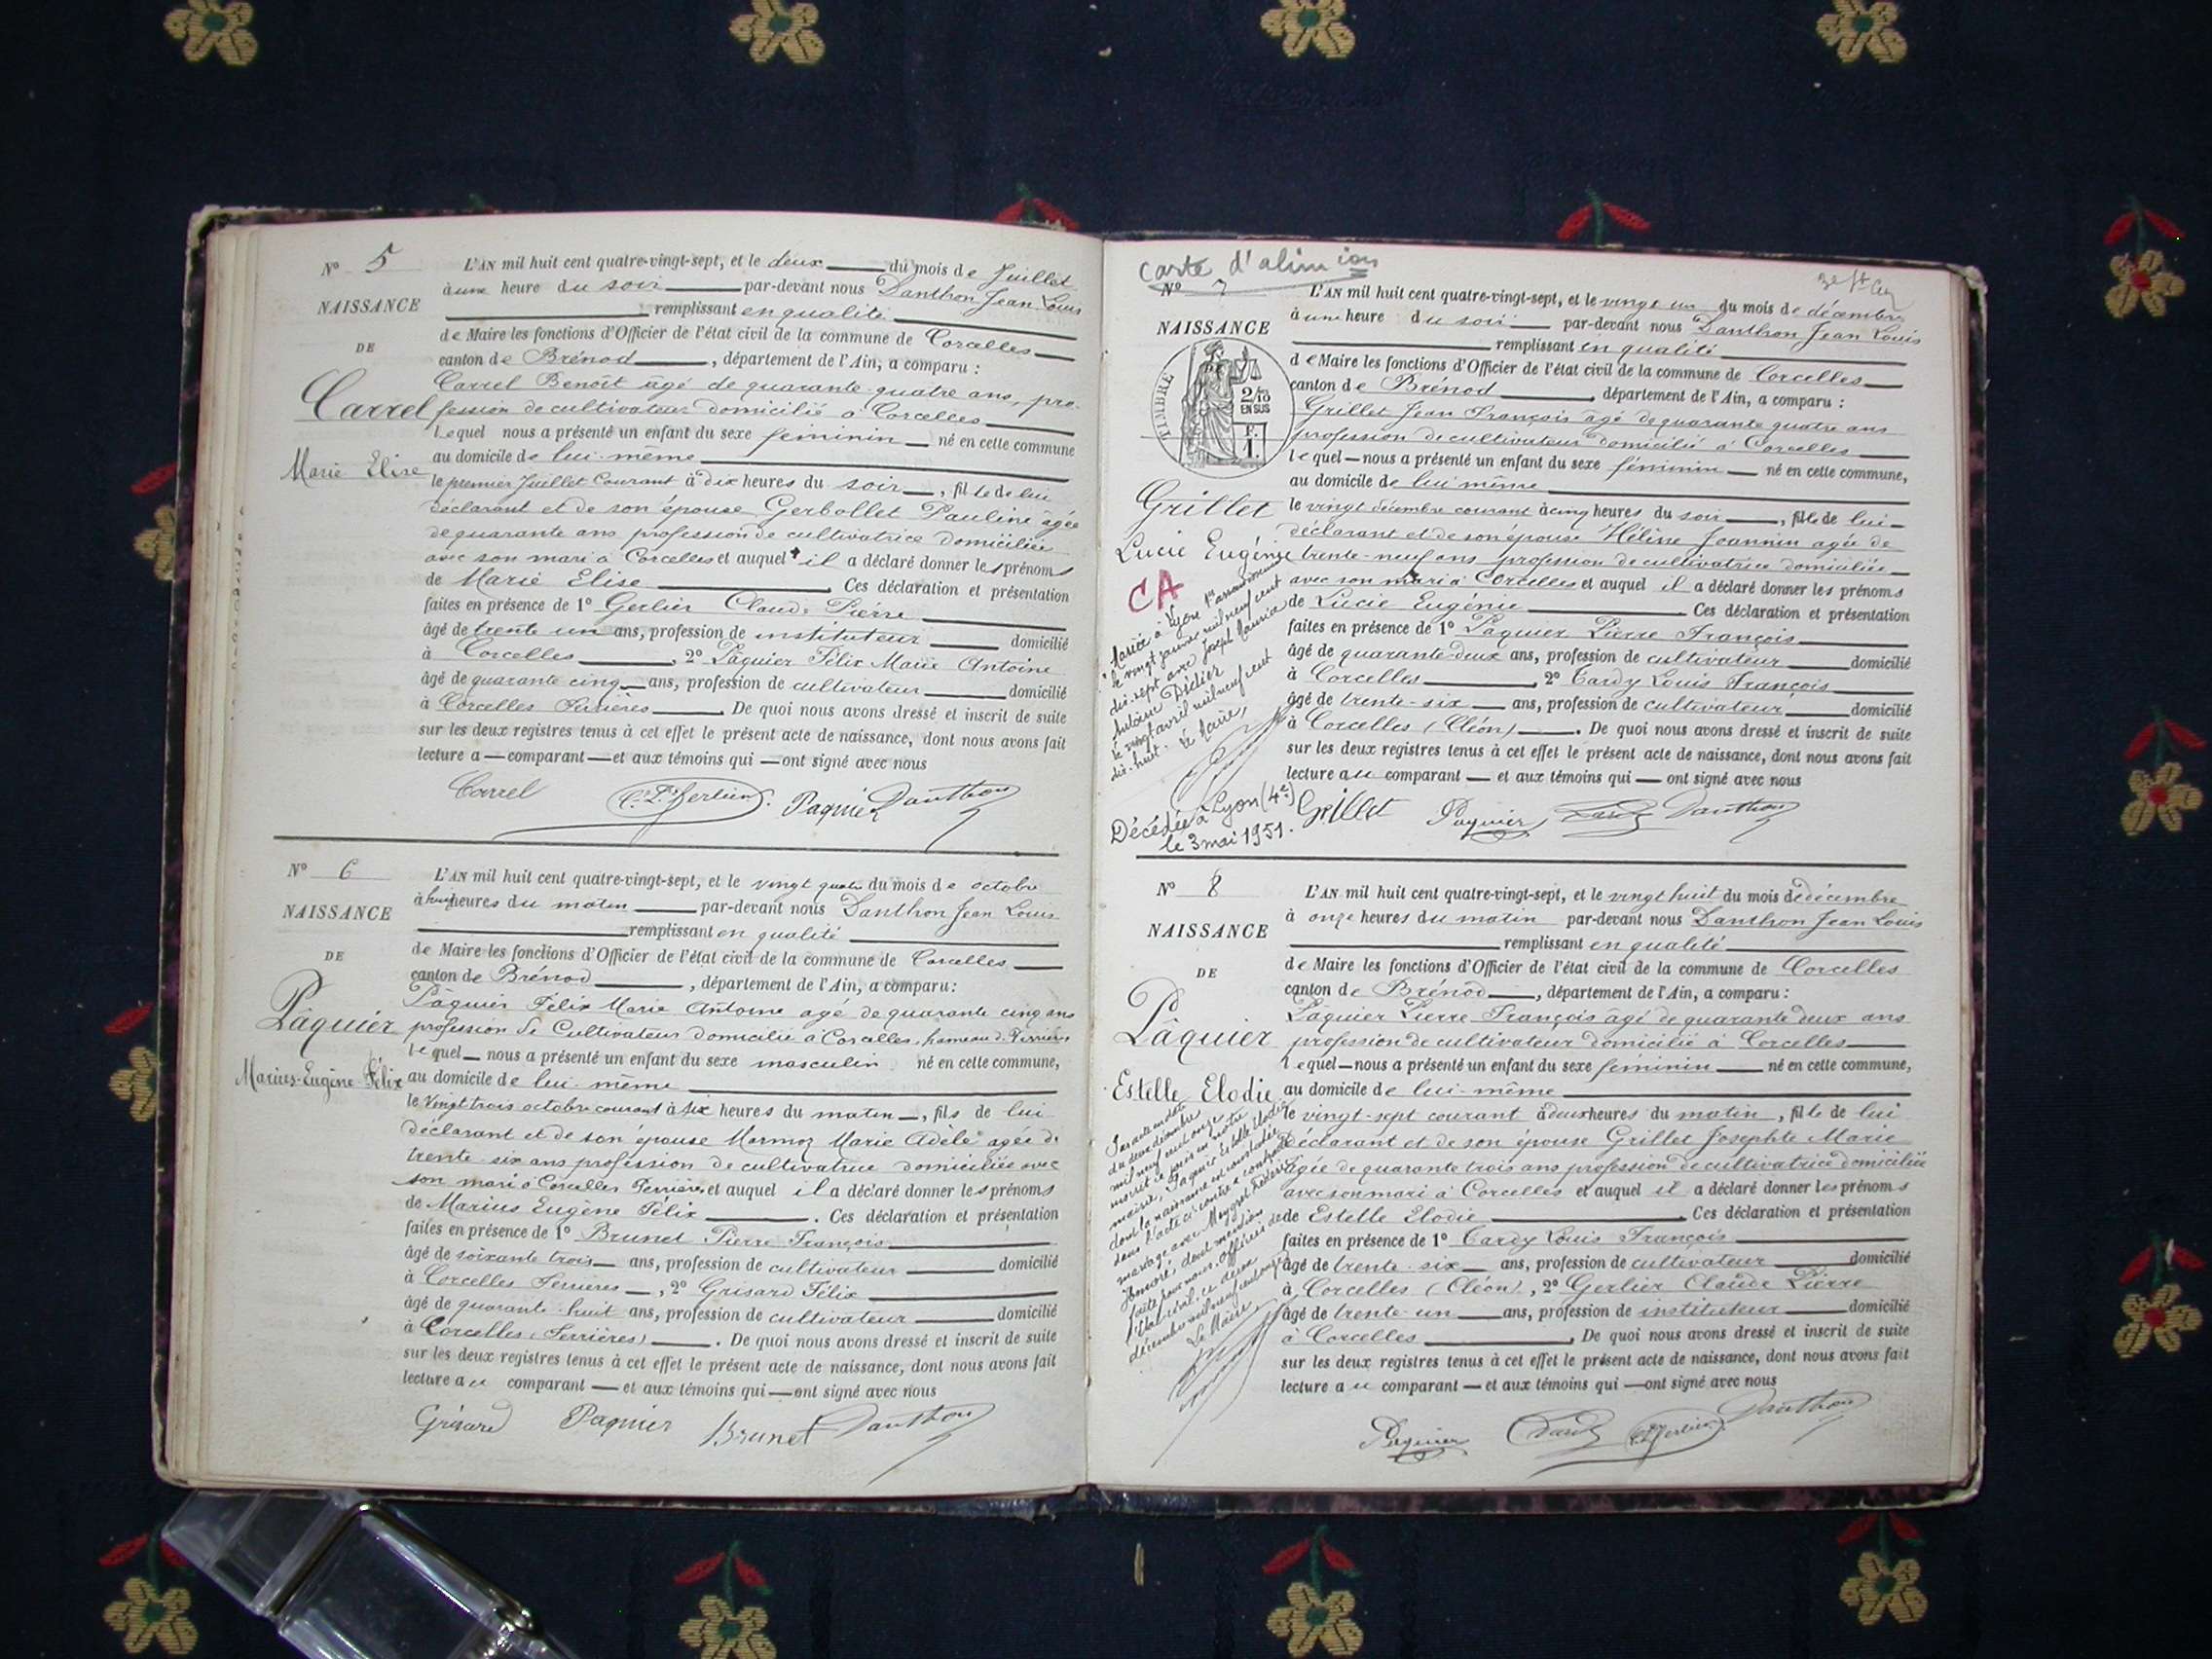 N° 5
NAISSANCE
DE
Carrel
Marie Elise
L'AN mil huit cent quatre-vingt-sept, et le deux du mois de Juillet
à une heure du soir par-devant nous Danthon Jean Louis
remplissant en qualité
de Maire les fonctions d'Officier de l'état civil de la commune de Corcelles
canton de Brénod, département de l'Ain, a comparu :
Carrel Benoît âgé de quarante-quatre ans, pro-
fession de cultivateur domicilié à Corcelles
Lequel nous a présenté un enfant du sexe féminin né en cette commune
au domicile de lui-même
le premier Juillet Courant à dix heures du soir, fille de lui
déclarant et de son épouse Gerbollet Pauline âgée
de quarante ans profession de cultivatrice domiciliée
avec son mari à Corcelles et auquel il a déclaré donner les prénoms
de Marie Elise. Ces déclaration et présentation
faites en présence de 1° Gerlier Claude Pierre
âgé de trente un ans, profession de instituteur domicilié
à Corcelles, 2° Pâquier Félix Marie Antoine
âgé de quarante cinq ans, profession de cultivateur domicilié
à Corcelles Ferrières. De quoi nous avons dressé et inscrit de suite
sur les deux registres tenus à cet effet le présent acte de naissance, dont nous avons fait
lecture a comparant et aux témoins qui ont signé avec nous
Carrel C. P. Gerlier Paquier Danthon
N° 6
NAISSANCE
DE
Pâquier
Marius-Eugène Félix
L'AN mil huit cent quatre-vingt-sept, et le vingt quatre du mois de octobre
à huit heures du matin par-devant nous Danthon Jean Louis
remplissant en qualité
de Maire les fonctions d'Officier de l'état civil de la commune de Corcelles
canton de Brénod, département de l'Ain, a comparu :
Pâquier Félix Marie Antoine âgé de quarante cinq ans
profession de Cultivateur domicilié à Corcelles, hameau de Ferrières
lequel nous a présenté un enfant du sexe masculin né en cette commune,
au domicile de lui-même
le Vingt trois octobre courant à six heures du matin, fils de lui
déclarant et de son épouse Marmoz Marie Adèle agée de
trente-six ans profession de cultivatrice domiciliée avec
son mari à Corcelles Ferrières et auquel il a déclaré donner les prénoms
de Marius Eugène Félix. Ces déclaration et présentation
faites en présence de 1° Brunet Pierre François
âgé de soixante trois ans, profession de cultivateur domicilié
à Corcelles Ferrières, 2° Grisard Félix
âgé de quarante-huit ans, profession de cultivateur domicilié
à Corcelles (Ferrières). De quoi nous avons dressé et inscrit de suite
sur les deux registres tenus à cet effet le présent acte de naissance, dont nous avons fait
lecture au comparant et aux témoins qui ont signé avec nous
Grisard Paquier Brunet Danthon
Carte d'alim ion
N° 7
NAISSANCE
TIMBRE
2/10
EN SUS
F.
1.
Grillet
Lucie Eugénie
CA
Mariée à Lyon 1er arrondissement
le vingt janvier mil neuf cent
dix-sept avec Joseph Maurice
Antoine Didier
le vingt avril mil neuf cent
dix-huit. Le Maire,
Décédée à Lyon (4e)
le 3 mai 1951.
L'AN mil huit cent quatre-vingt-sept, et le vingt un du mois de décembre
à une heure du soir par-devant nous Danthon Jean Louis
remplissant en qualité
de Maire les fonctions d'Officier de l'état civil de la commune de Corcelles
canton de Brénod, département de l'Ain, a comparu :
Grillet Jean François âgé de quarante quatre ans
profession de cultivateur domicilié à Corcelles
lequel nous a présenté un enfant du sexe féminin né en cette commune,
au domicile de lui même
le vingt décembre courant à cinq heures du soir, fille de lui
déclarant et de son épouse Hélène Jeannin agée de
trente-neuf ans profession de cultivatrice domiciliée
avec son mari à Corcelles et auquel il a déclaré donner les prénoms
de Lucie Eugénie. Ces déclaration et présentation
faites en présence de 1° Pâquier Pierre François
âgé de quarante-deux ans, profession de cultivateur domicilié
à Corcelles, 2° Tardy Louis François
âgé de trente-six ans, profession de cultivateur domicilié
à Corcelles (Cléon). De quoi nous avons dressé et inscrit de suite
sur les deux registres tenus à cet effet le présent acte de naissance, dont nous avons fait
lecture au comparant et aux témoins qui ont signé avec nous
Grillet Paquier Tardy Danthon
N° 8
NAISSANCE
DE
Pâquier
Estelle Elodie
mil neuf cent onze
inscrit ce jour en notre
mairie, Paquier Estelle Elodie
dont la naissance est constatée
dans l'acte ci-contre a contracté
mariage avec Frédéric
Honoré, dont mention
faite par nous, officier de
l'état-civil, ce deux
décembre mil neuf cent onze
Le Maire,
L'AN mil huit cent quatre-vingt-sept, et le vingt huit du mois de décembre
à onze heures du matin par-devant nous Danthon Jean Louis
remplissant en qualité
de Maire les fonctions d'Officier de l'état civil de la commune de Corcelles
canton de Brénod, département de l'Ain, a comparu :
Pâquier Pierre François âgé de quarante deux ans
profession de cultivateur domicilié à Corcelles
lequel nous a présenté un enfant du sexe féminin né en cette commune,
au domicile de lui-même
le vingt-sept courant à deux heures du matin, fille de lui
déclarant et de son épouse Grillet Josephte Marie
âgée de quarante trois ans profession de cultivatrice domiciliée
avec son mari à Corcelles et auquel il a déclaré donner les prénoms
de Estelle Elodie. Ces déclaration et présentation
faites en présence de 1° Tardy Louis François
âgé de trente-six ans, profession de cultivateur domicilié
à Corcelles (Cléon), 2° Gerlier Claude Pierre
âgé de trente-un ans, profession de instituteur domicilié
à Corcelles. De quoi nous avons dressé et inscrit de suite
sur les deux registres tenus à cet effet le présent acte de naissance, dont nous avons fait
lecture au comparant et aux témoins qui ont signé avec nous
Paquier Tardy C. P. Gerlier Danthon